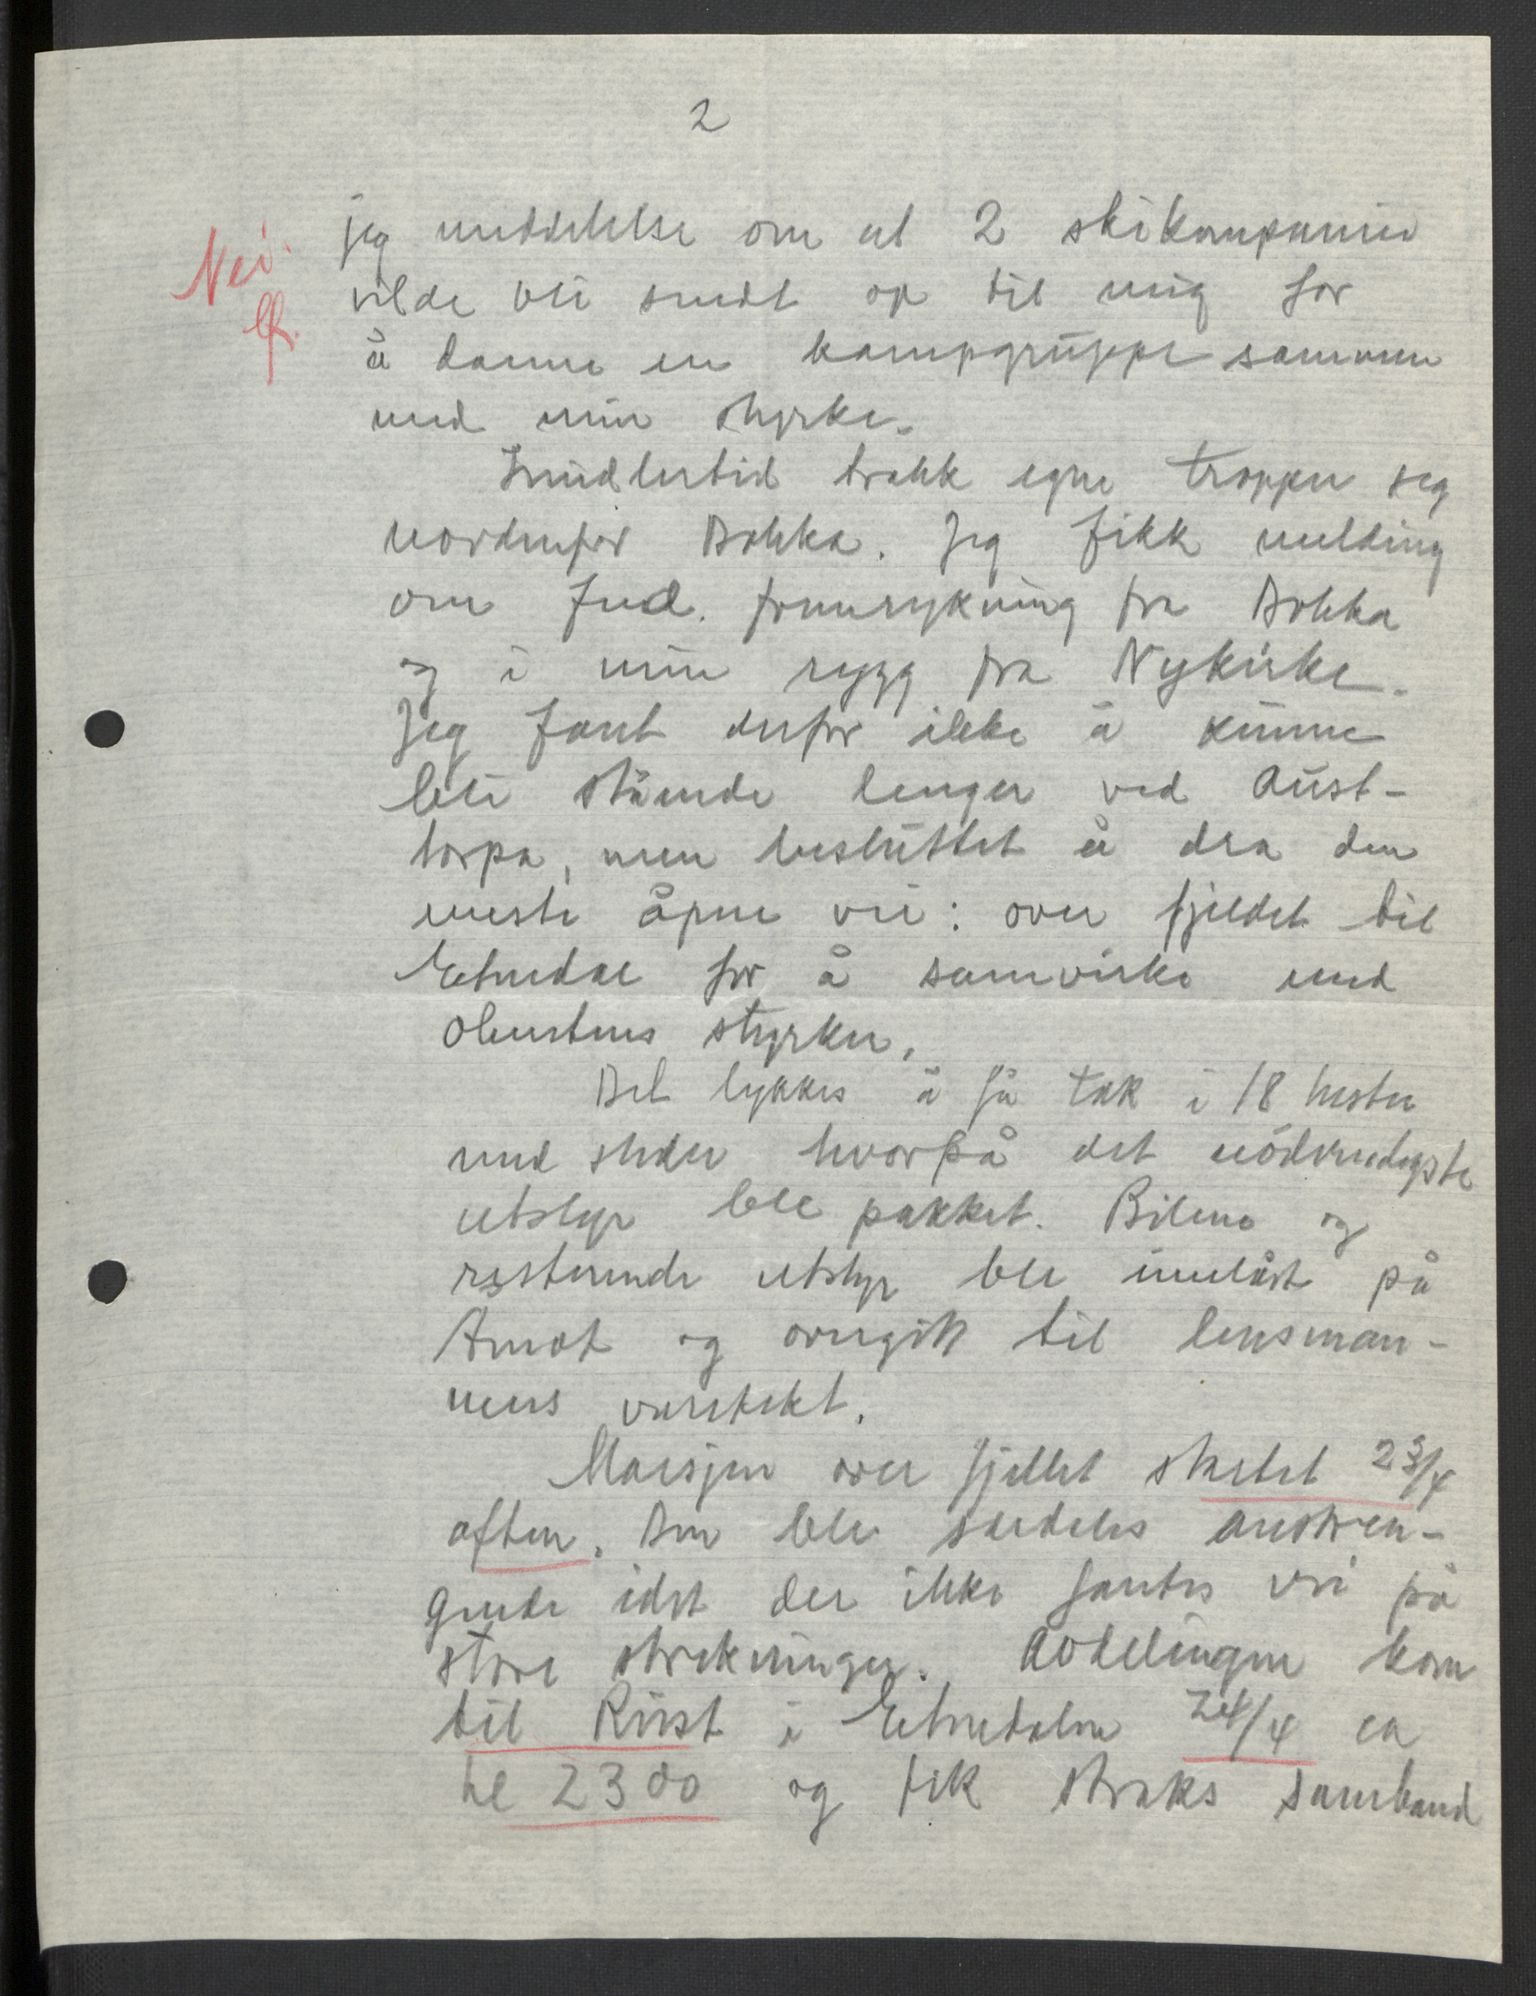 2
Nei.
jeg meddelelse om at 2 skikompanier
vilde bli sendt op til mig for
å danne en kampgruppe sammen
med min styrke.
Imidlertid trakk egne tropper seg
nordenfor Dokka. Jeg fikk melding
om fiendl. fremrykning fra Dokka
og i min rygg fra Nykirke.
Jeg fant derfor ikke å kunne
bli stående lenger ved Aust-
torpa, men besluttet å dra den
eneste åpne vei: over fjeldet til
Etnedal for å samvirke med
Oberstens styrker.
Det lykkes å få tak i 18 hester
med sleder hvorpå det nödvendigste
utstyr ble pakket. Bilene og
resterende utstyr ble innelåst på
Amot og overgikk til lensman-
nens varetekt.
Marsjen over fjellet startet 23/4
aften. Den ble særdeles anstren-
gende idet der ikke fantes vei på
store strekninger. Avdelingen kom
til Rust i Etnedalen 24/4 ca
kl 2300 og fik straks samband